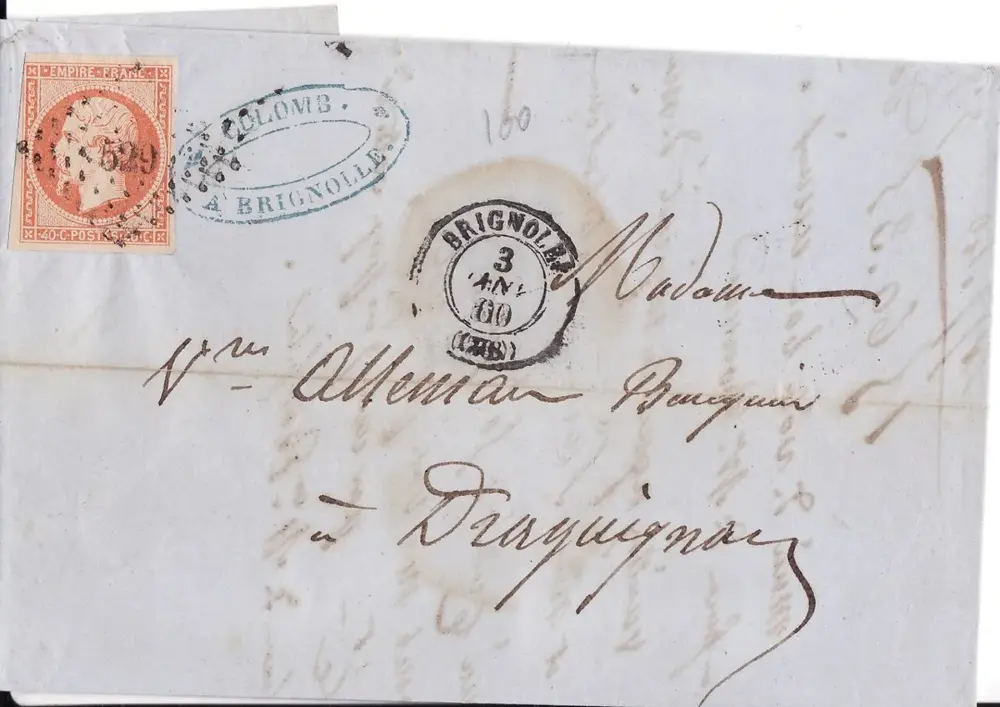 EMPIRE·FRANC·
529
40·C·POSTES·40·C·
COLOMB.
A BRIGNOLLE.
160
BRIGNOLES
3
JANV.
60
Madame
Vve Alleman Banquier
à Draguignan